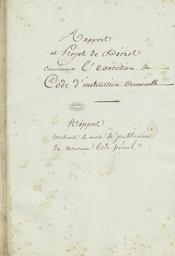 Rapport
et Projet de Décret
concernant l'exécution du
Code d'instruction Criminelle
Rapport
touchant le mode de publication
du nouveau Code pénal